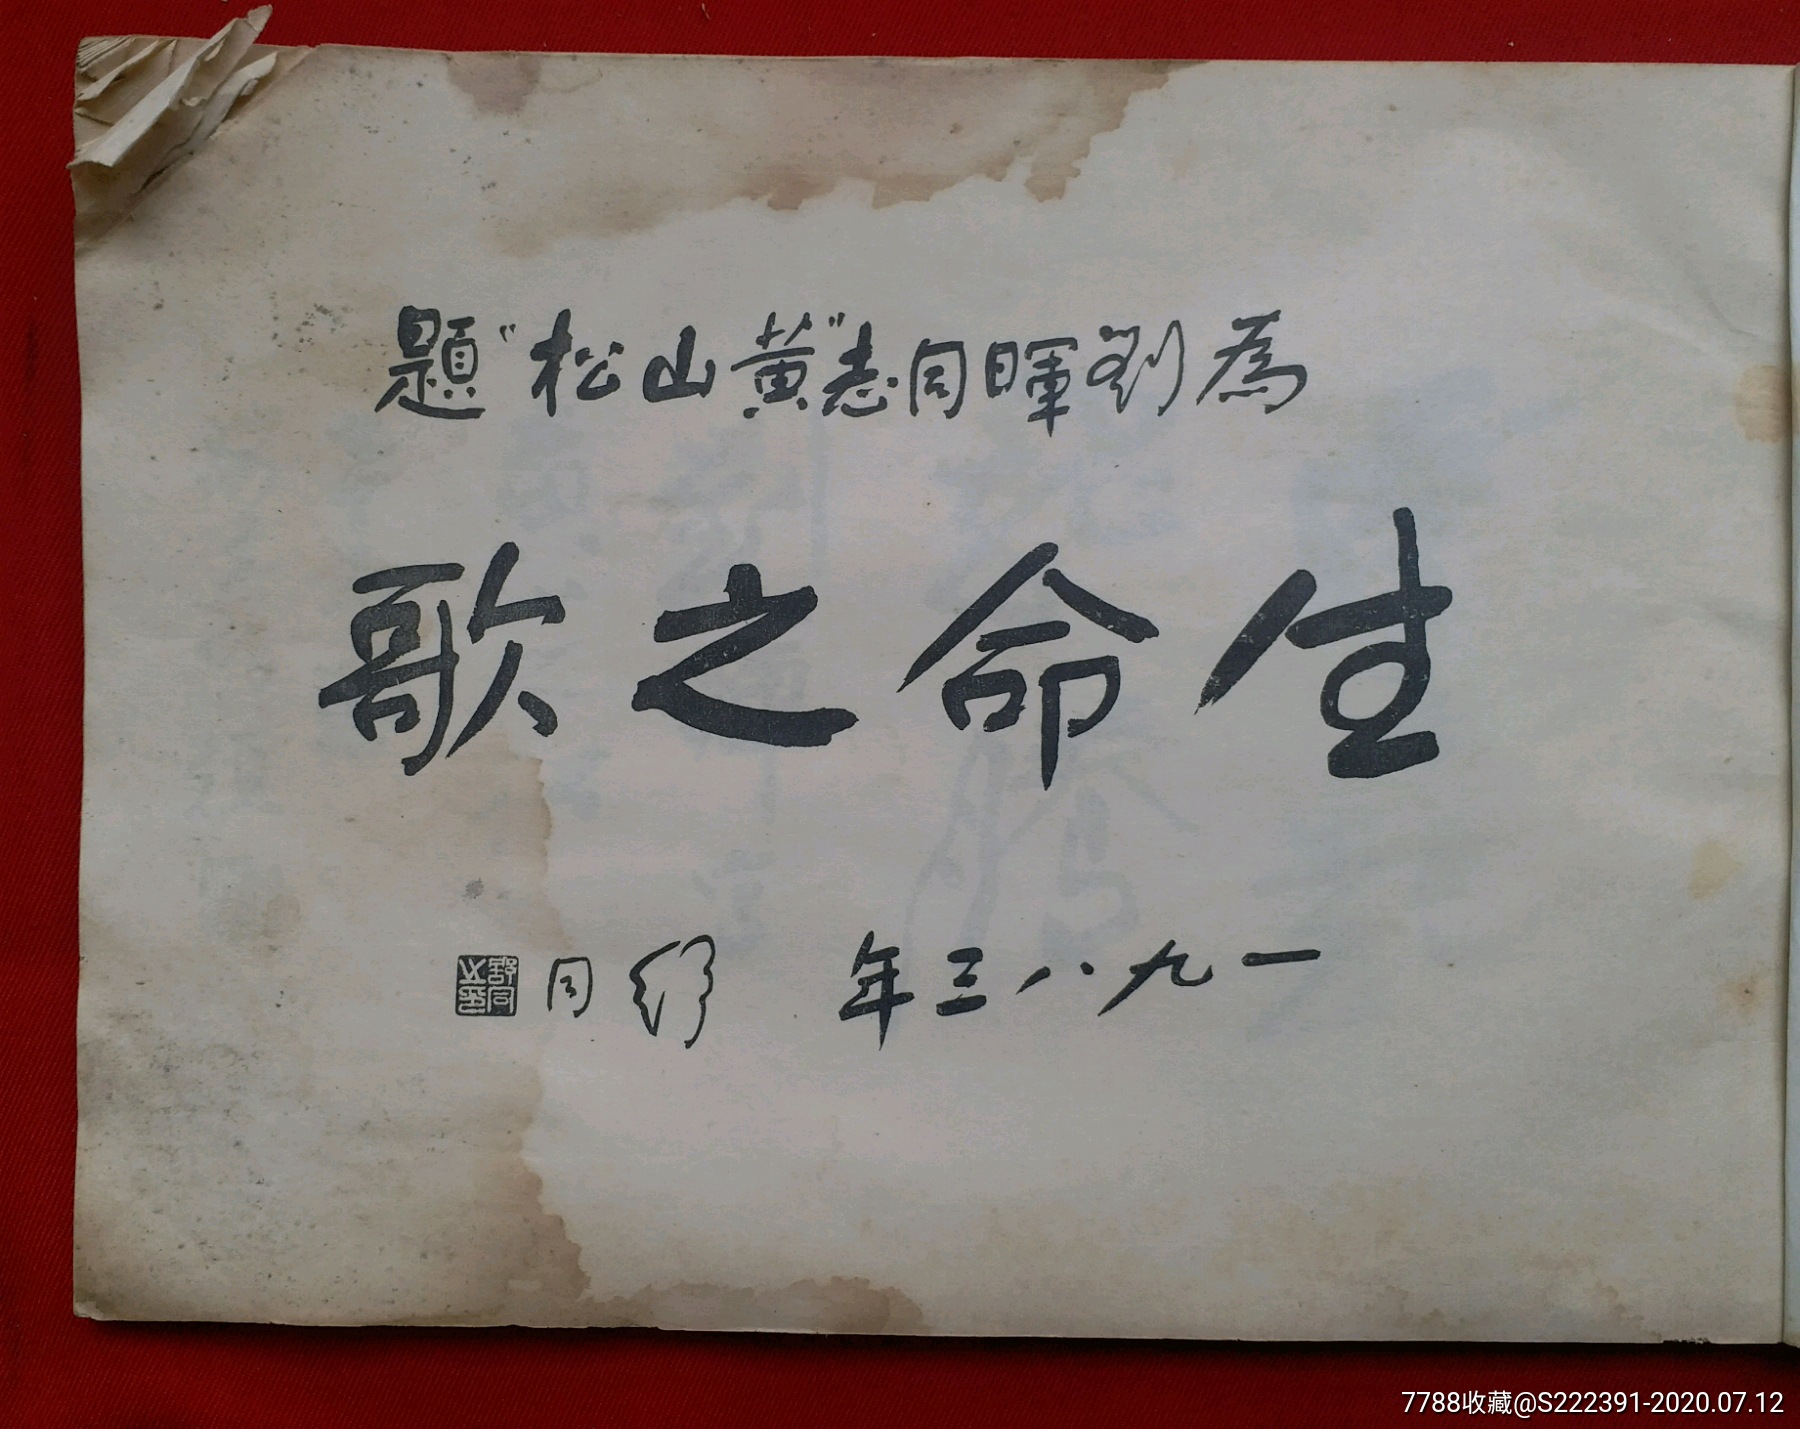 為劉暉同志"黄山松"題
生命之歌
一九八三年 舒同
舒同之印
7788收藏@S222391-2020.07.12